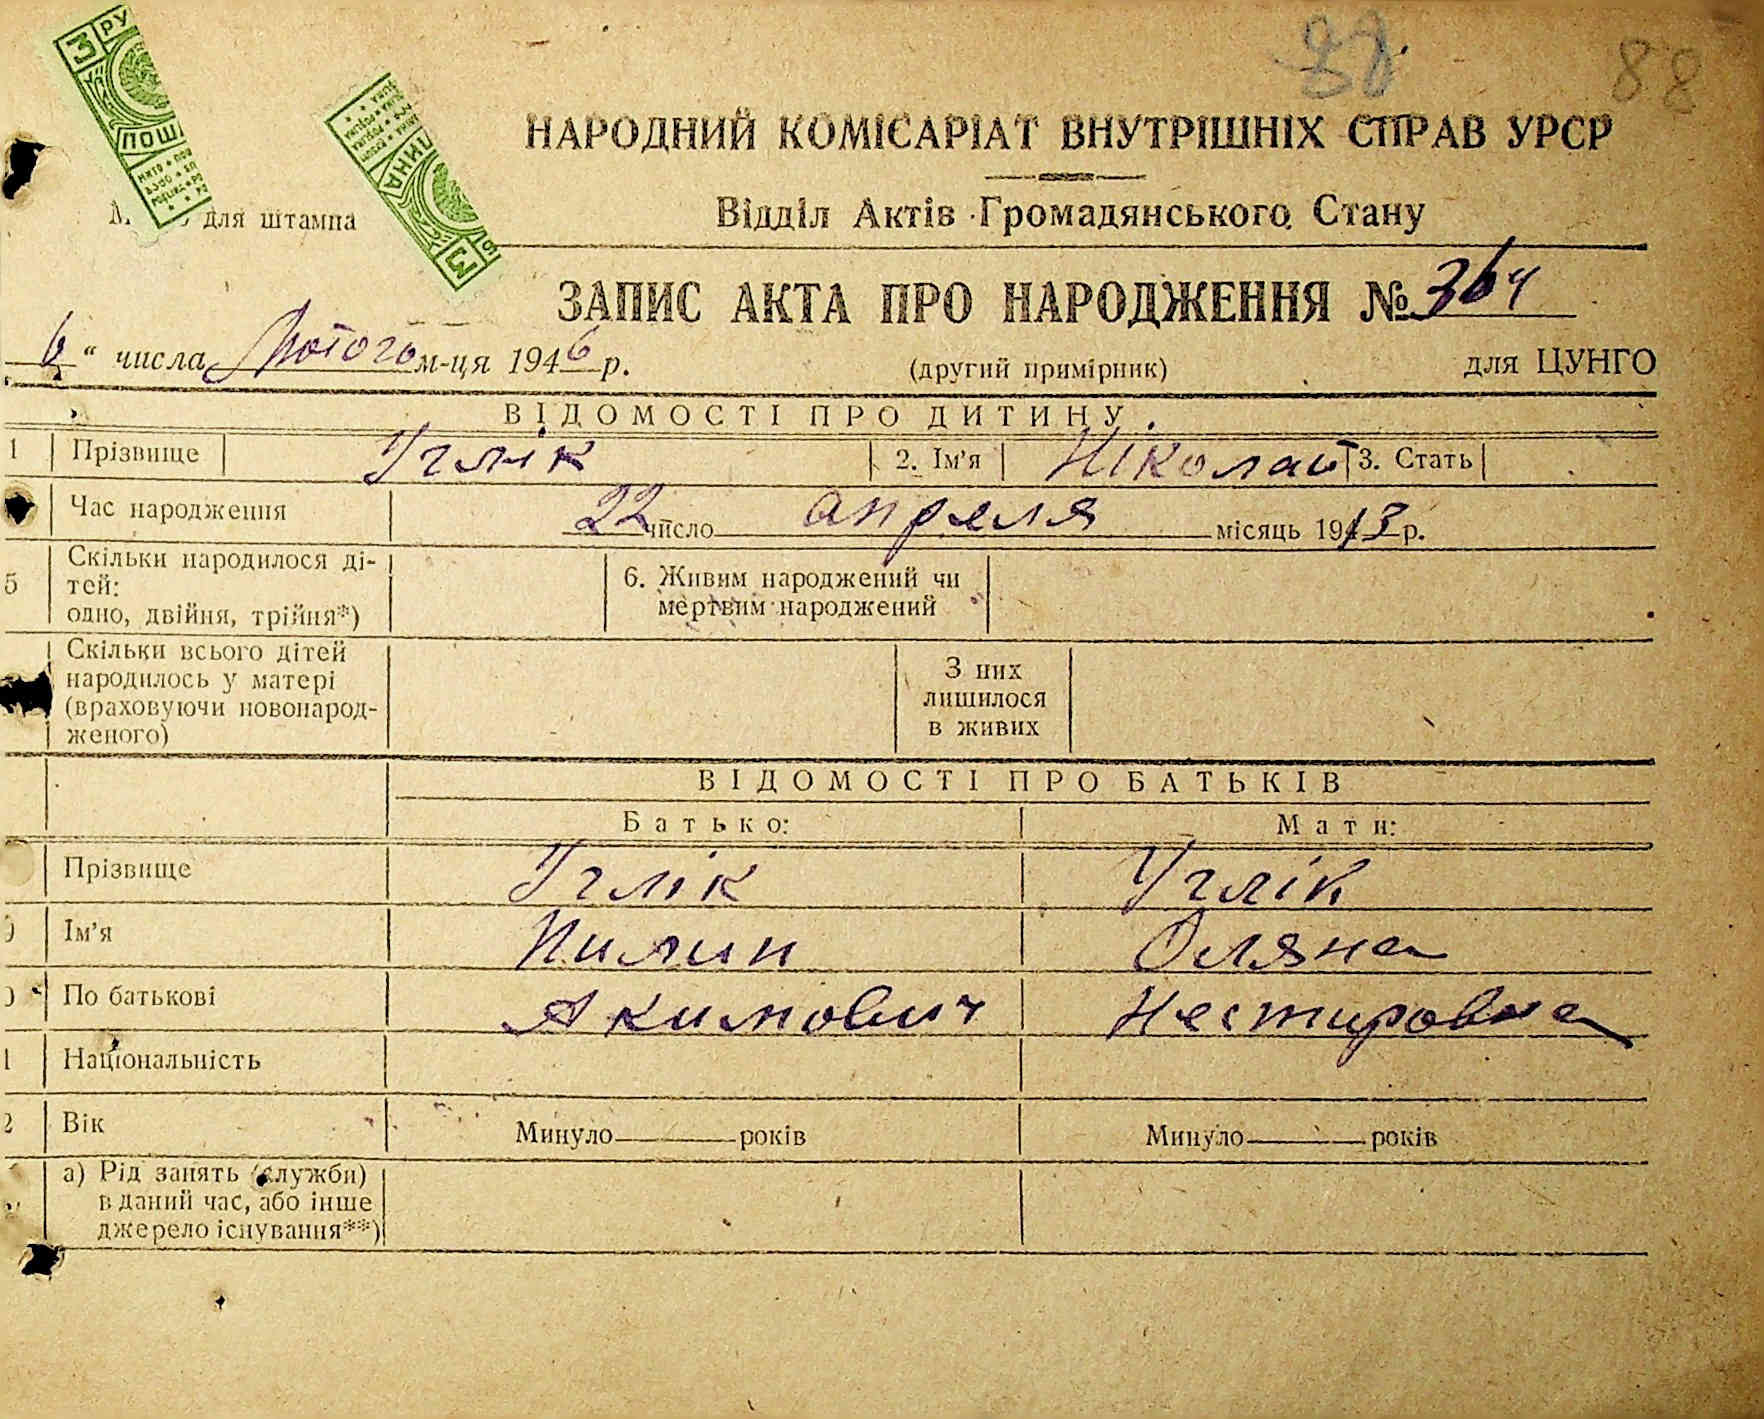 88
НАРОДНИЙ КОМІСАРІАТ ВНУТРІШНІХ СПРАВ УРСР
для штампа
Відділ Актів Громадянського Стану
ЗАПИС АКТА ПРО НАРОДЖЕННЯ № 364
6 “ числа Лютого м-ця 1946 р. (другий примірник) для ЦУНГО
ВІДОМОСТІ ПРО ДИТИНУ
1 Прізвище Углік 2. Ім’я Ніколай 3. Стать
Час народження 22 число апреля місяць 1913 р.
5 Скільки народилося ді-
тей:
одно, двійня, трійня*)
6. Живим народжений чи
мертвим народжений
Скільки всього дітей
народилось у матері
(враховуючи новонарод-
женого)
З них
лишилося
в живих
ВІДОМОСТІ ПРО БАТЬКІВ
Батько: Мати:
Прізвище Углік Углік
Ім’я Пилип Оляна
По батькові Акимович Нестировна
1 Національність
2 Вік Минуло років Минуло років
а) Рід занять (служби)
в даний час, або інше
джерело існування**)